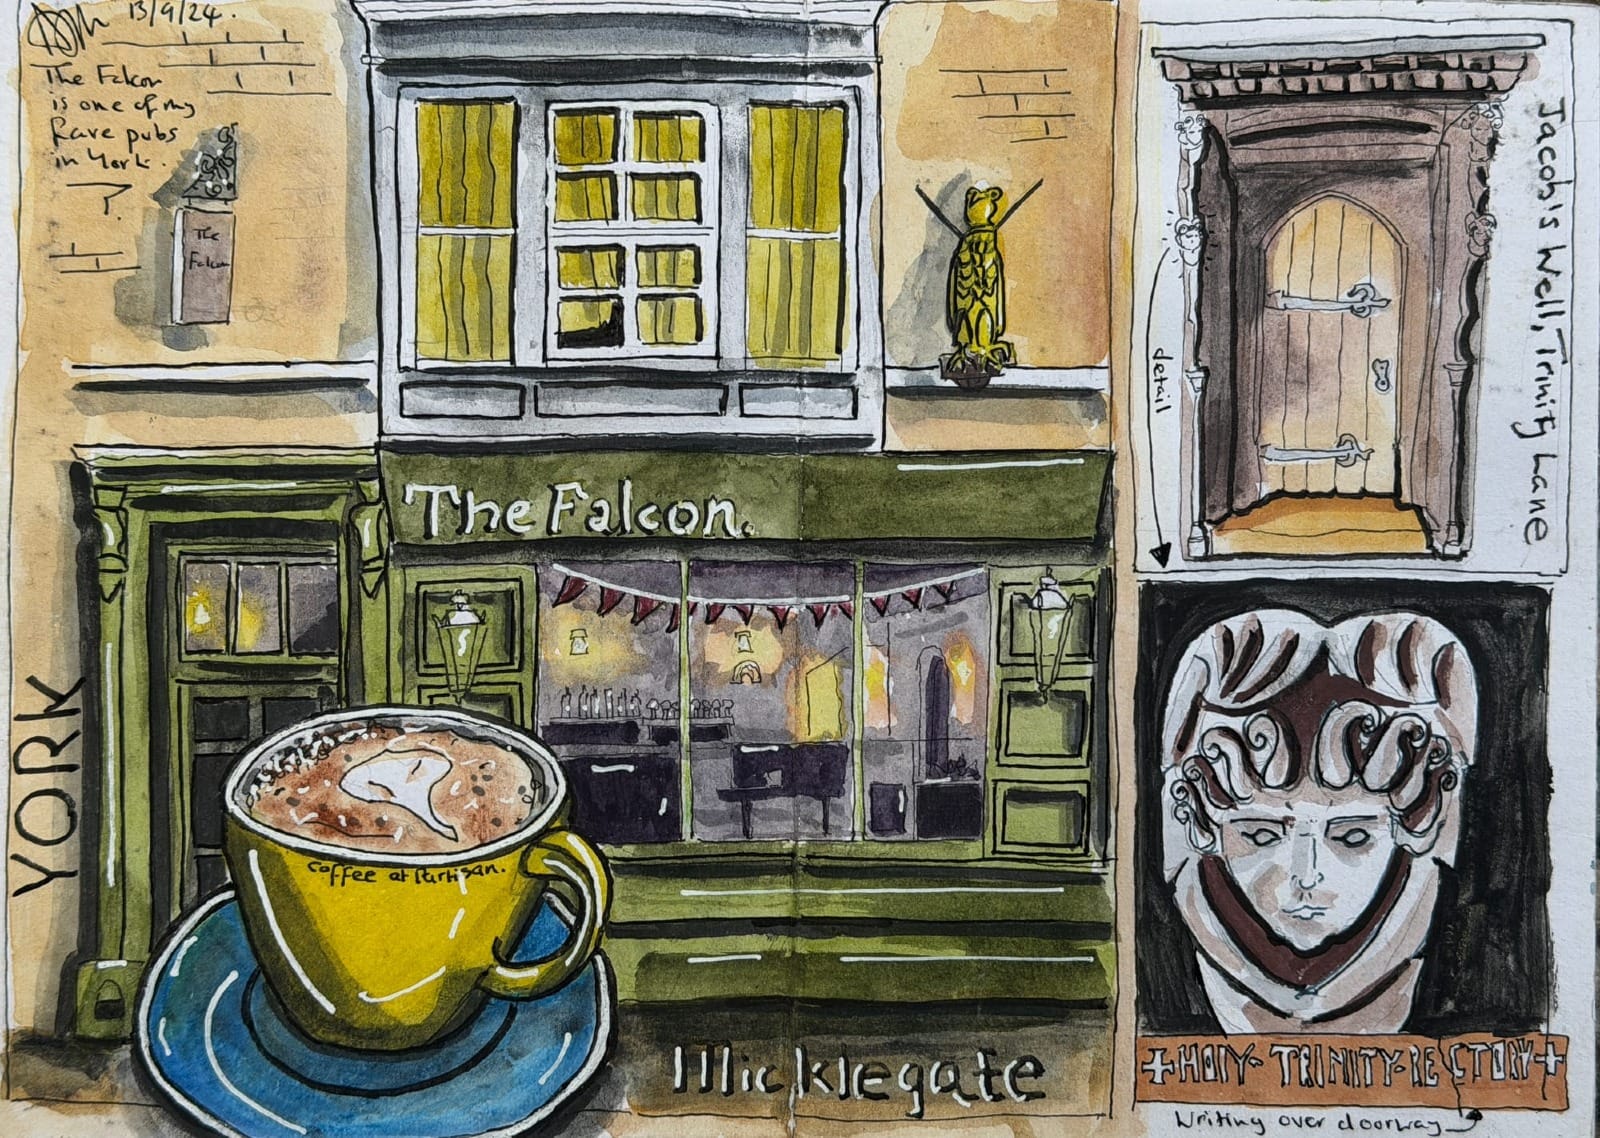 13/9/24.
The Falcon
is one of my
fave pubs
in York.
The
Falcon
The Falcon.
YORK
coffee at Partisan.
Micklegate
Jacob's Well, Trinity Lane
detail
+HOLY·TRINITY·RECTORY+
Writing over doorway